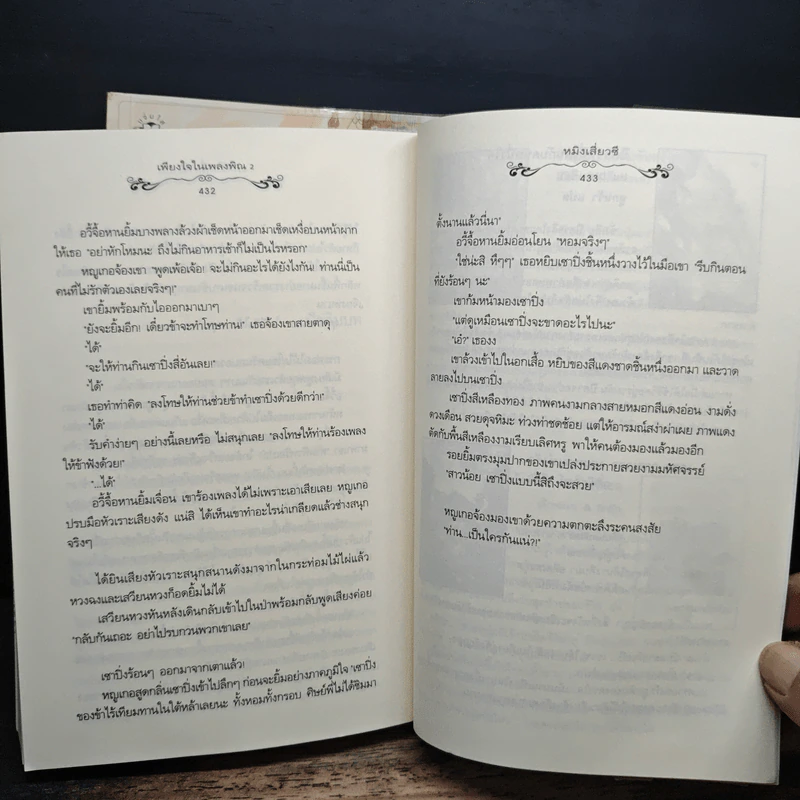 เพียงใจในเพลงพิณ 2
432
อวี้จื้อหานยิ้มบางพลางล้วงผ้าเช็ดหน้าออกมาเช็ดเหงื่อบนหน้าผาก
ให้เธอ "อย่าหักโหมนะ ถึงไม่กินอาหารเช้าก็ไม่เป็นไรหรอก"
หญูเกอจ้องเขา "พูดเพ้อเจ้อ! จะไม่กินอะไรได้ยังไงกัน! ท่านนี่เป็น
คนที่ไม่รักตัวเองเลยจริงๆ!"
เขายิ้มพร้อมกับไอออกมาเบาๆ
"ยังจะยิ้มอีก! เดี๋ยวข้าจะทำโทษท่าน!" เธอจ้องเขาสายตาดุ
"ได้"
"จะให้ท่านกินเซาปิ่งสี่อันเลย!"
"ได้"
เธอทำท่าคิด "ลงโทษให้ท่านช่วยข้าทำเซาปิ่งด้วยดีกว่า!"
"ได้"
รับคำง่ายๆ อย่างนี้เลยหรือ ไม่สนุกเลย "ลงโทษให้ท่านร้องเพลง
ให้ข้าฟังด้วย!"
"...ได้"
อวี้จื้อหานยิ้มเจื่อน เขาร้องเพลงได้ไม่เพราะเอาเสียเลย หญูเกอ
ปรบมือหัวเราะเสียงดัง แน่สิ ได้เห็นเขาทำอะไรน่าเกลียดแล้วช่างสนุก
จริงๆ
ได้ยินเสียงหัวเราะสนุกสนานดังมาจากในกระท่อมไม้ไผ่แล้ว
หวงฉงและเสวียนหวงก็อดยิ้มไม่ได้
เสวียนหวงหันหลังเดินกลับเข้าไปในป่าพร้อมกับพูดเสียงค่อย
"กลับกันเถอะ อย่าไปรบกวนพวกเขาเลย"
เซาปิ่งร้อนๆ ออกมาจากเตาแล้ว!
หญูเกอสูดกลิ่นเซาปิ่งเข้าไปลึกๆ ก่อนจะยิ้มอย่างภาคภูมิใจ "เซาปิ่ง
ของข้าไร้เทียมทานในใต้หล้าเลยนะ ทั้งหอมทั้งกรอบ ศิษย์พี่ไม่ได้ชิมมา
หมิงเสี่ยวซี
433
ตั้งนานแล้วนี่นา"
อวี้จื้อหานยิ้มอ่อนโยน "หอมจริงๆ"
"ใช่น่ะสิ หึๆๆ" เธอหยิบเซาปิ่งชิ้นหนึ่งวางไว้ในมือเขา "รีบกินตอน
ที่ยังร้อนๆ นะ"
เขาก้มหน้ามองเซาปิ่ง
"แต่ดูเหมือนเซาปิ่งจะขาดอะไรไปนะ"
"เอ๋?" เธองง
เขาล้วงเข้าไปในอกเสื้อ หยิบของสีแดงชาดชิ้นหนึ่งออกมา และวาด
ลายลงไปบนเซาปิ่ง
เซาปิ่งสีเหลืองทอง ภาพคนงามกลางสายหมอกสีแดงอ่อน งามดั่ง
ดวงเดือน สวยดุจหิมะ ท่วงท่าชดช้อย แต่ให้อารมณ์สง่าผ่าเผย ภาพแดง
ตัดกับพื้นสีเหลืองงามเรียบเลิศหรู พาให้คนต้องมองแล้วมองอีก
รอยยิ้มตรงมุมปากของเขาเปล่งประกายสวยงามมหัศจรรย์
"สาวน้อย เซาปิ่งแบบนี้สิถึงจะสวย"
หญูเกอจ้องมองเขาด้วยความตกตะลึงระคนสงสัย
"ท่าน...เป็นใครกันแน่?!"